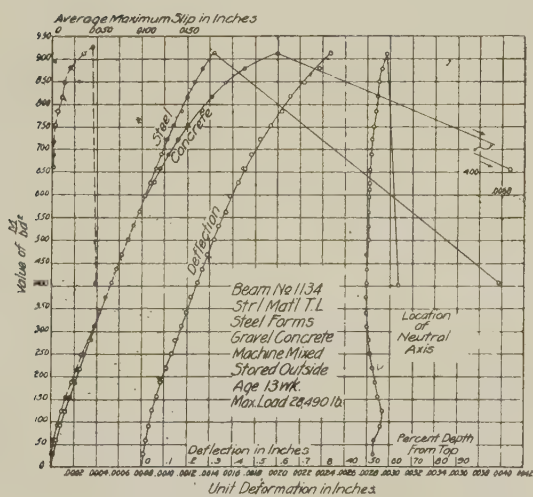 Average Maximum Slip in Inches
0 .0050 .0100 .0150
950
900
850
800
750
700
650
600
550
500
450
400
350
300
250
200
150
100
50
0
Value of M/bd²
Steel
Concrete
Deflection
400
.0068
Beam No 1134
Strl Matl T.L
Steel Forms
Gravel Concrete
Machine Mixed
Stored Outside
Age 13 wk.
Max. Load 28,490 lb.
Location
of
Neutral
Axis
Deflection in Inches
Percent Depth
from Top
0 .1 .2 .3 .4 .5 .6 .7 .8 40 50 60 70 80 90
.0002 .0004 .0006 .0008 .0010 .0012 .0014 .0016 .0018 .0020 .0022 .0024 .0026 .0028 .0030 .0032 .0034 .0036 .0038 .0040 .0042
Unit Deformation in Inches.